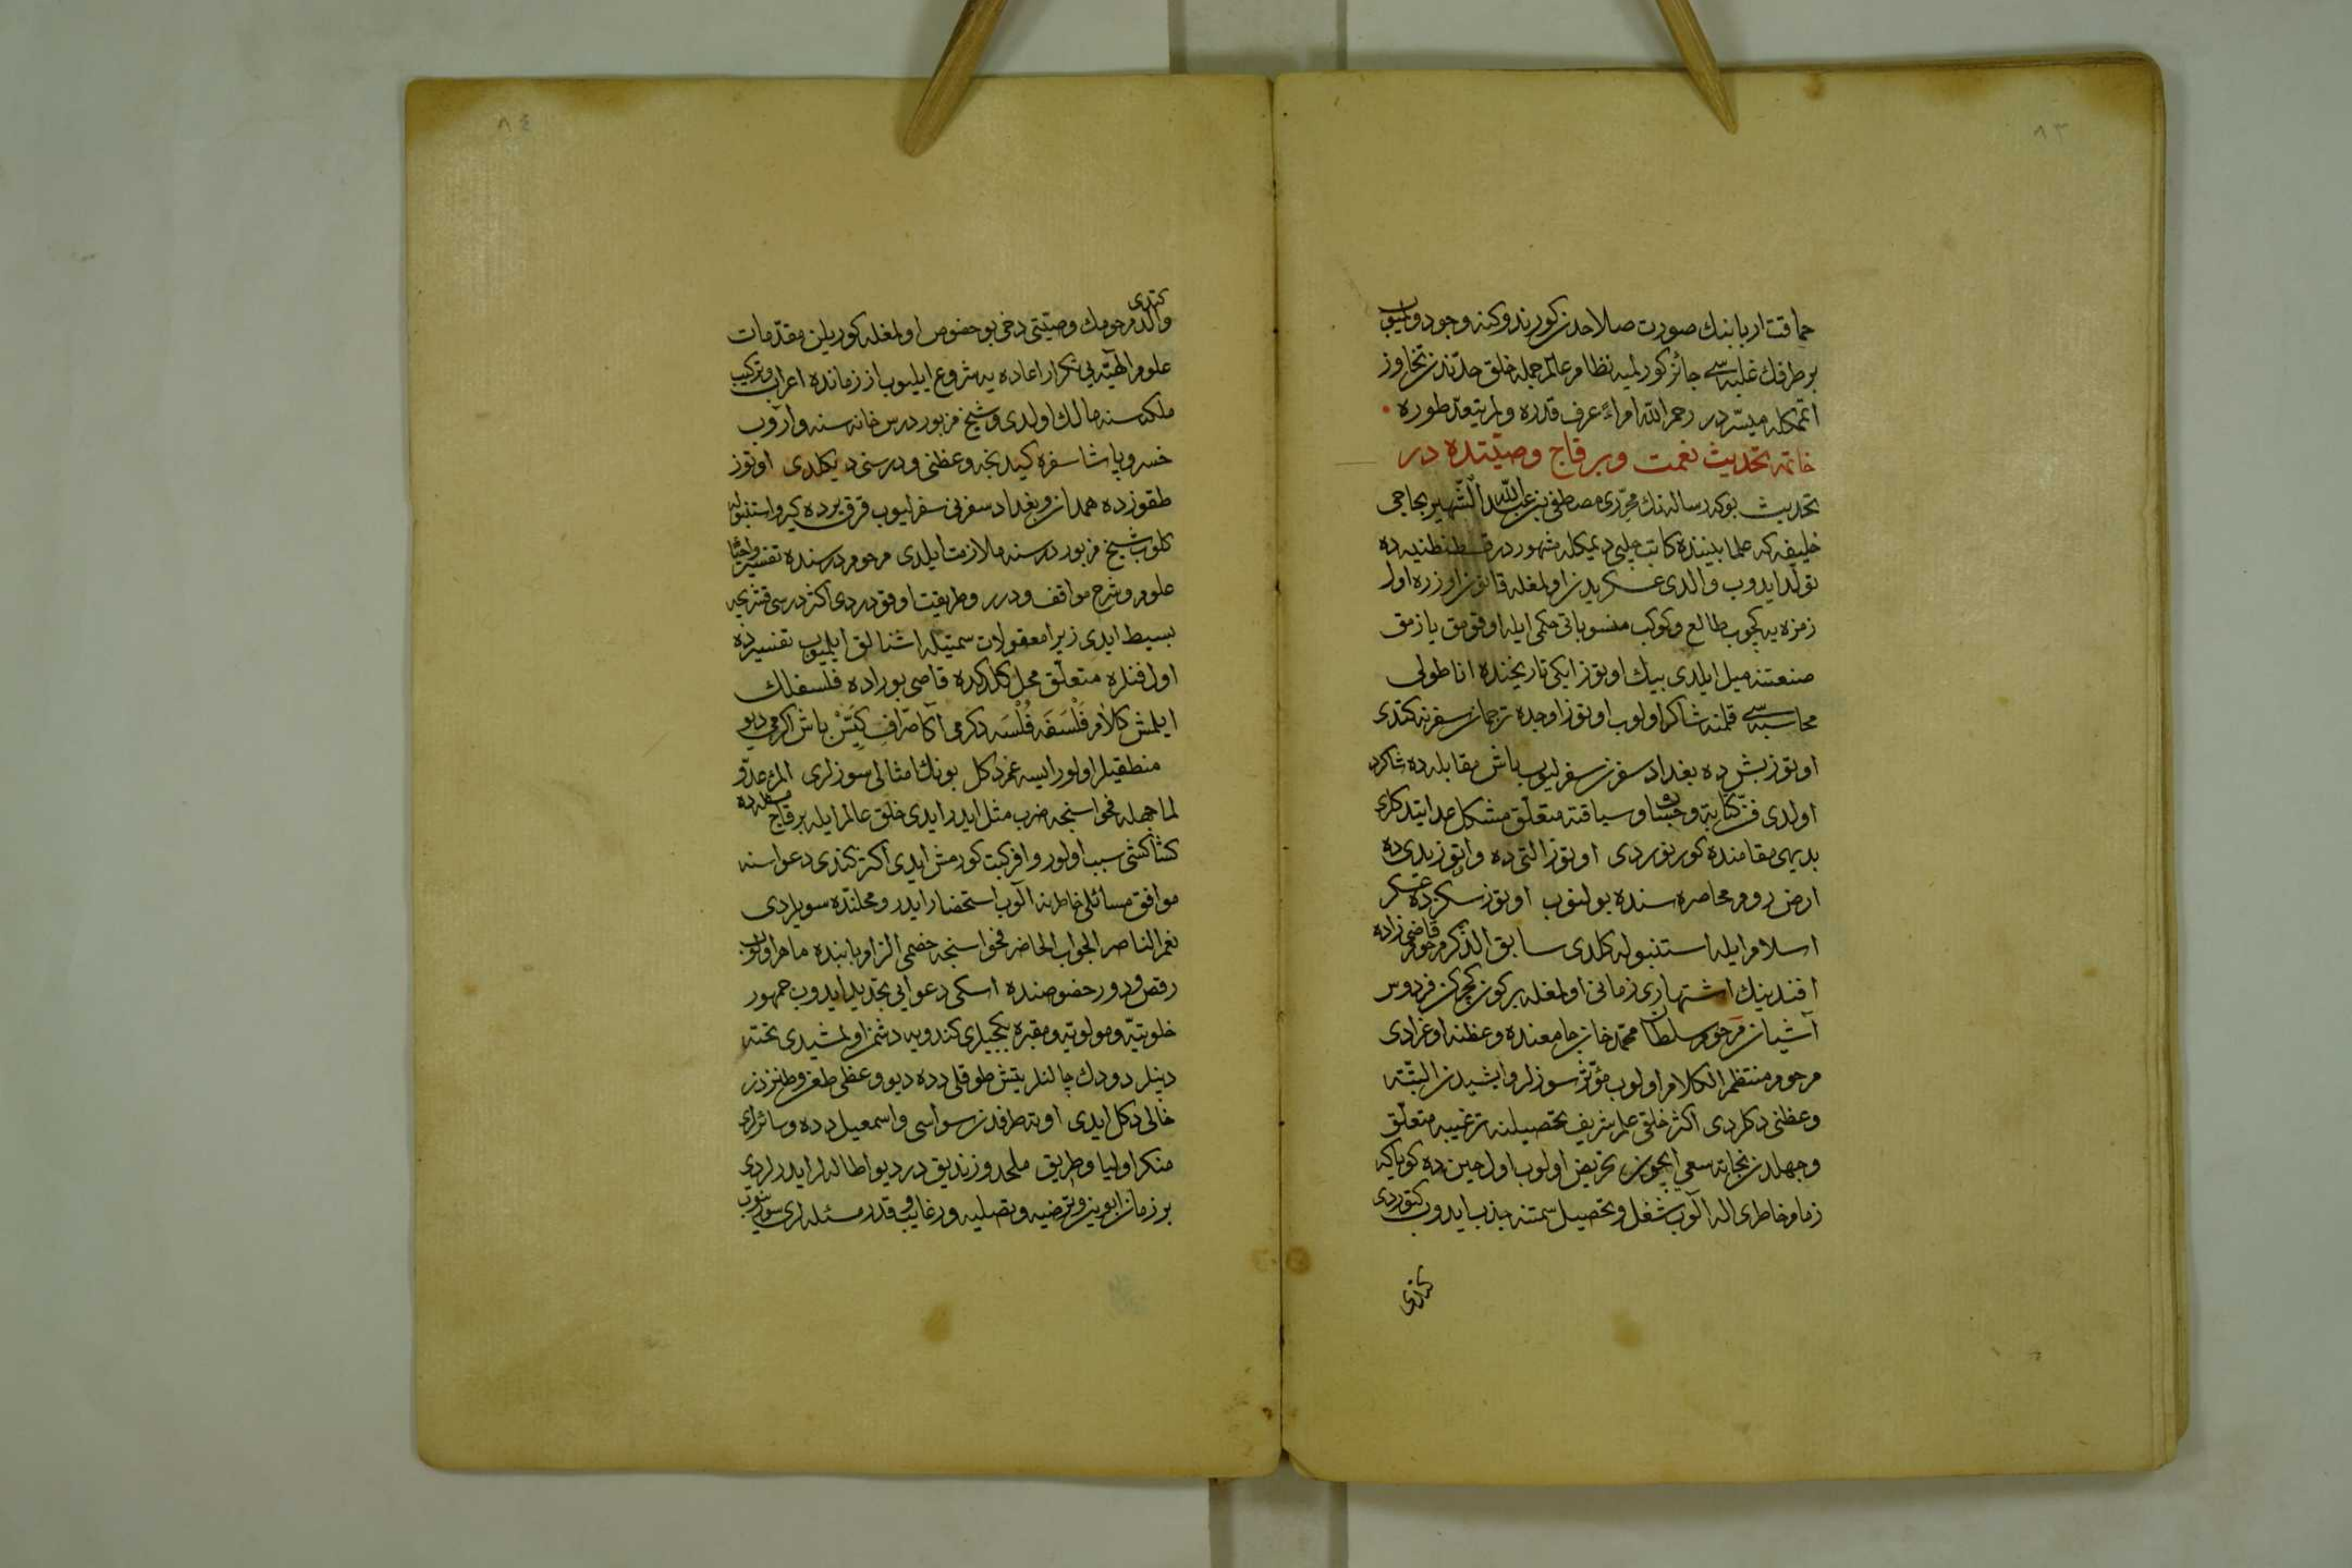 ٨٣
حماقت اربابنك صورت صلاحدن كورندوكنه وجود ويرميوب
بر طرفك غلبه سى جائز كورلميه نظام عالم جمله خلق حدّندن تجاوز
اتمكله ميسّردر رحم الله امراءً عرف قدره ولم يتعدّ طوره
خاتمه تحديث نعمت وبر قاج وصيّتده در
تحديث بوكه رساله نك محرّرى مصطفى بن عبد الله الشّهير بحاجى
خليفه كه علما بيننده كاتب چلبى ديمكله مشهوردر قسطنطنيه ده
تولّد ايدوب والدى عسكريدن اولمغله قانون اوزره اول
زمره يه كچوب طالع وكوكب منسوباتى حكمى ايله اوقومق يازمق
صنعتنه ميل ايلدى بيك اوتوز ايكى تاريخنده اناطولى
محاسبه سى قلمنه شاكرد اولوب اوتوز اوچده ترجان سفرنه كتدى
اوتوز بشده بغداد سفرن سفرليوب باش مقابله ده شاكرد
اولدى فنّ كتابة وحساب وسياقته متعلّق مشكل عدايتدكلرى
بديهى مقامنده كورنوردى اوتوز التى ده واوتوز يدى ده
ارض روم محاصره سنده بولنوب اوتوز سكزده عسكر
اسلام ايله استنبوله كلدى سابق الذّكر مرحوم قاضى زاده
افندينك اشتهارى زمانى اولمغله بر كون كچركن فردوس
آشيان مرحوم سلطان محمّد خان جامعنده وعظنه اوغرادى
مرحوم منتظم الكلام اولوب مؤثّر سوزلر وايشيدن البتّه
وعظنى دكلردى اكثر خلقى علم شريف تحصيلنه ترغيبه متعلّق
وجهلدن نجاته سعى ايچون تحريض اولوب اول حين ده كوياكه
زمام خاطرى اله آلوب شغل وتحصيل سمتنه جذب ايدوب كتوردى
كتدى
٨٤
كتدى
والد مرحومك وصيّتى دخى بو خصوص اولمغله كوريلن مقدّمات
علوم الهيّه بى تكرار اعاده يه شروع ايليوب از زمانده اعراب وتركيب
ملكه سنه مالك اولدى وشيخ مزبور درس خانه سنه واروب
خسرو پاشا سفره كيدنجه وعظنى ودرسنى ديكلدى اوتوز
طقوزده همدان وبغداد سفرنى سفرليوب قرق برده كيرو استنبوله
كلوب شيخ مزبور درسنه ملازمت ايلدى مرحوم درسنده تفسير واحيا
علوم وشرح مواقف ودرر وطريقت اوقوردى اكثر درسى قشرى
بسيط ايدى زيرا معقولات سمتيله اشنالق ايلميوب تفسيرده
اول فنلره متعلّق محل كلدكده قاضى بوراده فلسفلك
ايلمش كلام فَلْسَفَه فُلْسَه دكرمى آكا صرّاف كيتّسْ باش اكرمى ديو
منطقيلر اولور ايسه غم دكل بونك امثالى سوزلرى المرء عدوّ
لما جهله فحواسنجه ضرب مثل ايدر ايدى خلق عالم ايله بر قاج مسئله ده
كشاكشى سبب اولور وافر كيت كورمش ايدى اكثر كندى دعواسنه
موافق مسائلى خاطرنه آلوب استحضار ايدر ومحلنده سويلردى
نعم الناصر الجواب الحاضر فحواسنجه خصمى الزام بابنده ماهر اولوب
رقص ودور خصوصنده اسكى دعوايى تجديد ايدوب جمهور
خلوتيّه ومولويّه ومقبره بكجيلرى كندويه دشمن اولمشيدى تخته
دپنلر دودك چالنلر يتش طوقلى دده ديو وعظى طعن وطنزدن
خالى دكل ايدى اوته طرفدن سواسى واسمعيل دده وسائرلرى
منكر اوليا وطريق ملحد وزنديق در ديو اطاله لر ايدرلردى
بر زمان ابوين وترضيه وتصليه ورغايب وقدر مسئله لرى سويلنوب